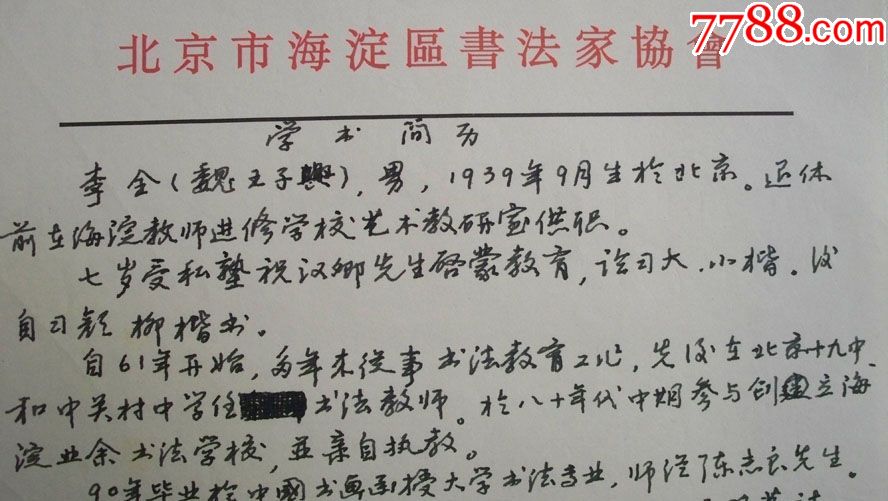 7788.com
北京市海淀區書法家協會
学书简历
李全(魏王子輿),男,1939年9月生於北京。退休
前在海淀教师进修学校艺术教研室供职。
七岁受私塾祝汉卿先生启蒙教育,诠习大、小楷。后
自习颜柳楷书。
自61年开始,多年来从事书法教育工作,先后在北京十九中
和中关村中学任书法教师。於八十年代中期参与创建立海
淀业余书法学校,並亲自执教。
90年毕业於中國书画函授大学书法专业,师从陈志良先生。